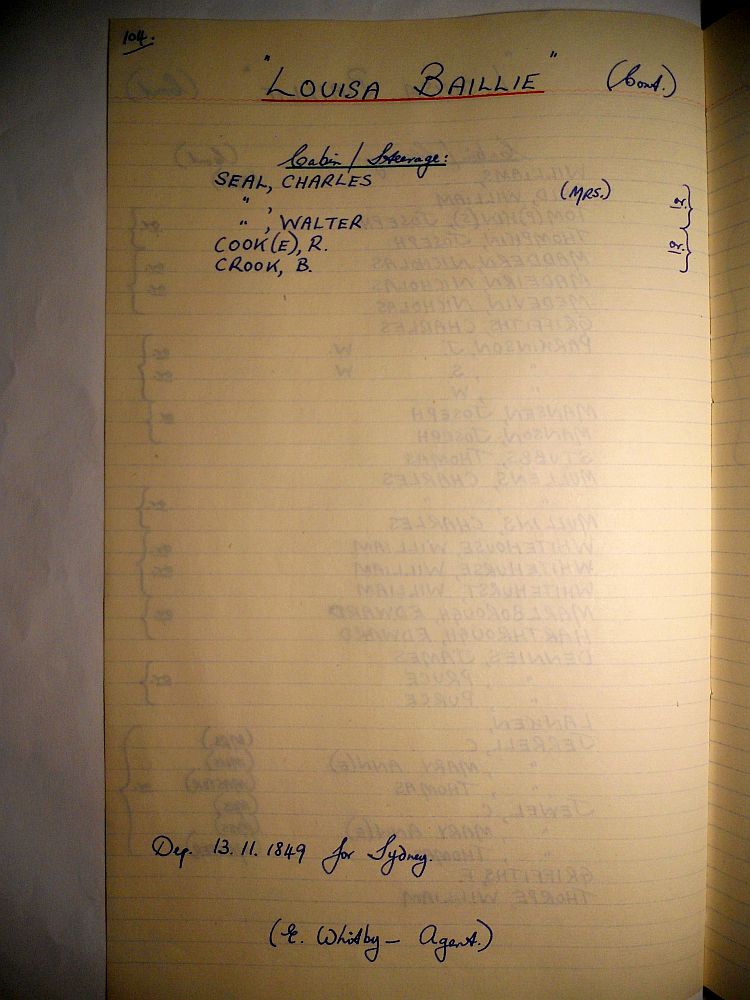 104.
"LOUISA BAILLIE" (Cont.)
Cabin / Steerage:
SEAL, CHARLES
" , (MRS.)
" , WALTER
or.
COOK(E), R.
CROOK, B.
or.
Dep. 13.11.1849 for Sydney.
(E. Whitby - Agent.)